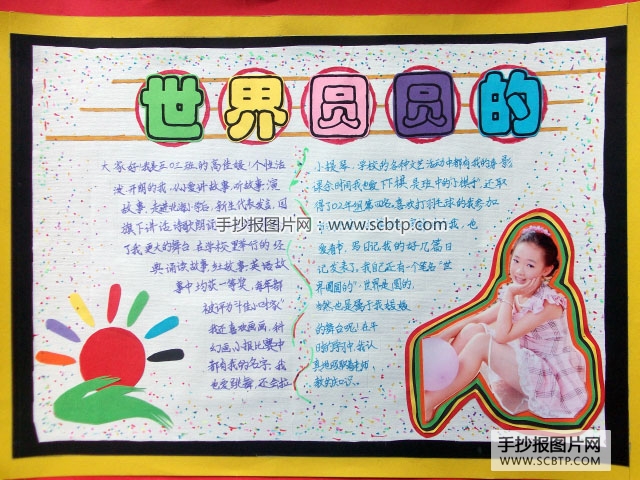 世界圆圆的
大家好!我是五〇三班的高佳媛!个性活
泼、开朗的我,从小爱讲故事、听故事、演
故事,走进北海小学后,新生代表发言、国
旗下讲话、诗歌朗诵
了我更大的舞台。在学校里举行的经
典诵读故事、红故事、英语故
事中均获一等奖,每年都
被评为"十佳小对象"
我还喜欢画画,科
幻画、小报比赛中
都有我的名字;我
也爱跳舞,还会拉
小提琴,学校的各种文艺活动中都有我的身影
课余时间我也爱下下棋,是班中的小棋手,还取
得了02年组第四名;喜欢打羽毛球的我参加
我,也
爱看书、写日记,我的好几篇日
记发表了,我自己还有个笔名"世
界圆圆的",世界是圆的,
当然,也是属于我媛媛
的舞台呢!在平
时的学习中,我认
真地吸取着老师
教的知识。
手抄报图片网 www.scbtp.com
手抄报图片网
WWW.SCBTP.COM